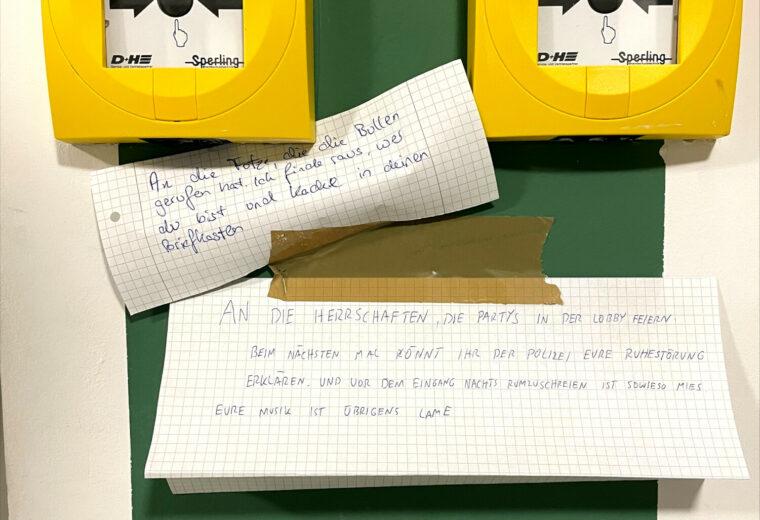 D+H
Sperling
D+H
Sperling
An die Fotze, die die Bullen
gerufen hat. Ich finde raus, wer
du bist und kacke in deinen
Briefkasten
AN DIE HERRSCHAFTEN, DIE PARTYS IN DER LOBBY FEIERN.
BEIM NÄCHSTEN MAL KÖNNT IHR DER POLIZEI EURE RUHESTÖRUNG
ERKLÄREN. UND VOR DEM EINGANG NACHTS RUMZUSCHREIEN IST SOWIESO MIES
EURE MUSIK IST ÜBRIGENS LAME